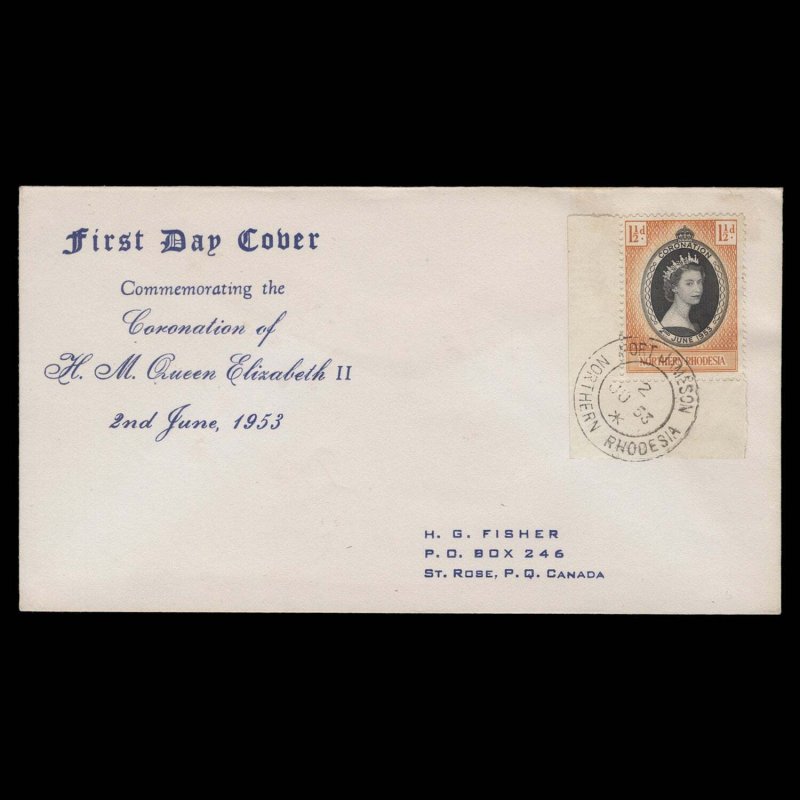 First Day Cover
Commemorating the
Coronation of
H. M. Queen Elizabeth II
2nd June, 1953
1½d. 1½d.
CORONATION
2ND JUNE 1953
NORTHERN RHODESIA
FORT JAMESON
2
JU 53
*
NORTHERN RHODESIA
H. G. FISHER
P.O. BOX 246
ST. ROSE, P.Q. CANADA